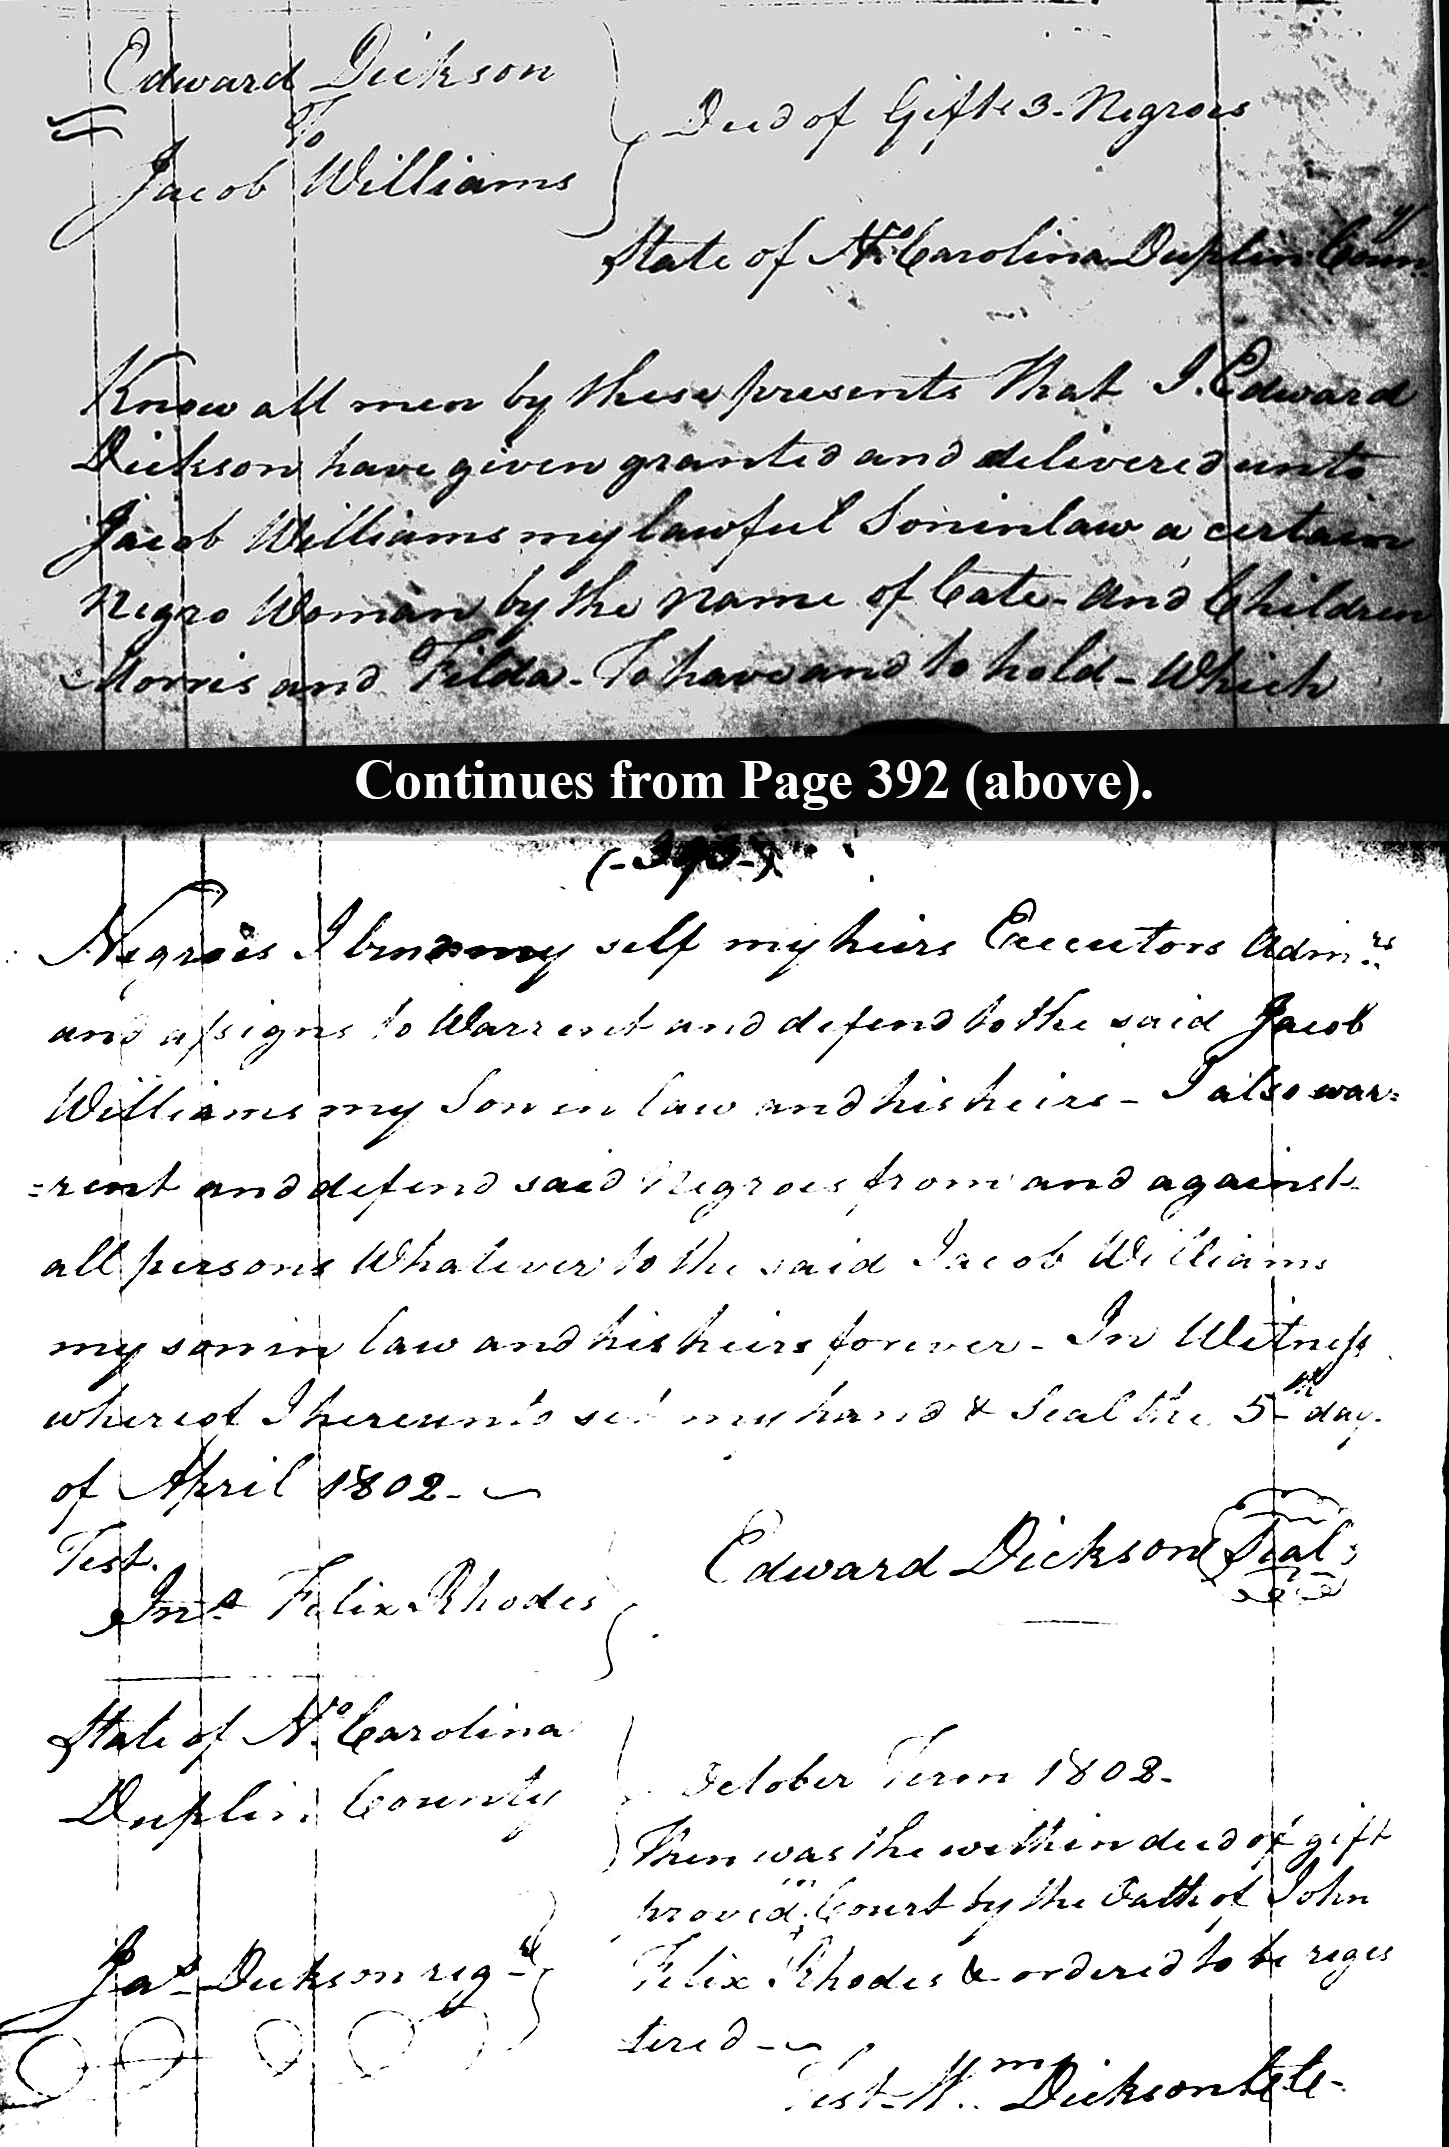 Edward Dickson
To
Jacob Williams
Deed of Gift 3 - Negroes
State of No. Carolina Duplin Coun ty
Know all men by these presents That I. Edward
Dickson have given granted and delivered unto
Jacob Williams my lawful Soninlaw a certain
Negro Woman by the name of Cate - and Children
Morris and Tilda - To have and to hold - Which
Continues from Page 392 (above).
(-393-)
Negroes I bind my self my heirs Executors Admrs
and assigns to Warrent and defend to the said Jacob
Williams my Son in law and his heirs - I also war=
=rent and defend said Negroes from and against
all persons Whatever to the said Jacob Williams
my son in law and his heirs forever - In Witness
whereof I hereunto set my hand & Seal the 5th day
of April 1802 -
Test.
Jno. Felix Rhodes
Edward Dickson Seal
State of No. Carolina
Duplin County
October Term 1802 -
Then was the within deed of gift
proved in Court by the Oath of John
Felix Rhodes & ordered to be regis
tered -
Jas. Dickson regr
Test Wm. Dickson